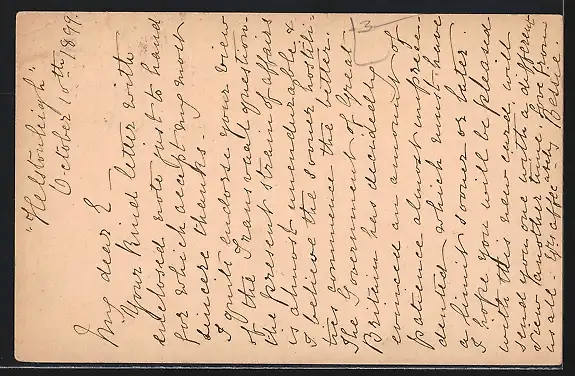 "Helstonleigh"
October 10th 1899.
3
My dear E
Your kind letter with
enclosed note just to hand
for which accept my most
sincere thanks.
I quite endorse your view
of the Transvaal question.
the present strain of affairs
is almost unendurable &
I believe the sooner hostili-
ties commence the better.
The Government of Great
Britain has decidedly
evinced an amount of
patience almost unprece-
dented which must have
a limit sooner or later.
I hope you will be pleased
with this new card, will
send you one with a different
view another time. Love from
us all. Yr. affec.